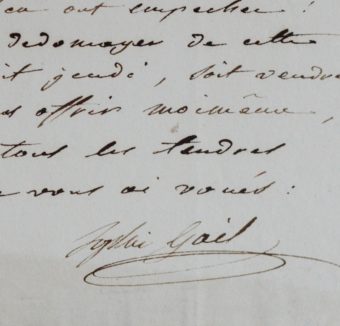 ont empecher !
dedomager de cette
it jeudi, soit vendre
offrir moimême,
tous les tendres
vous ai voués :
Sophie Gail